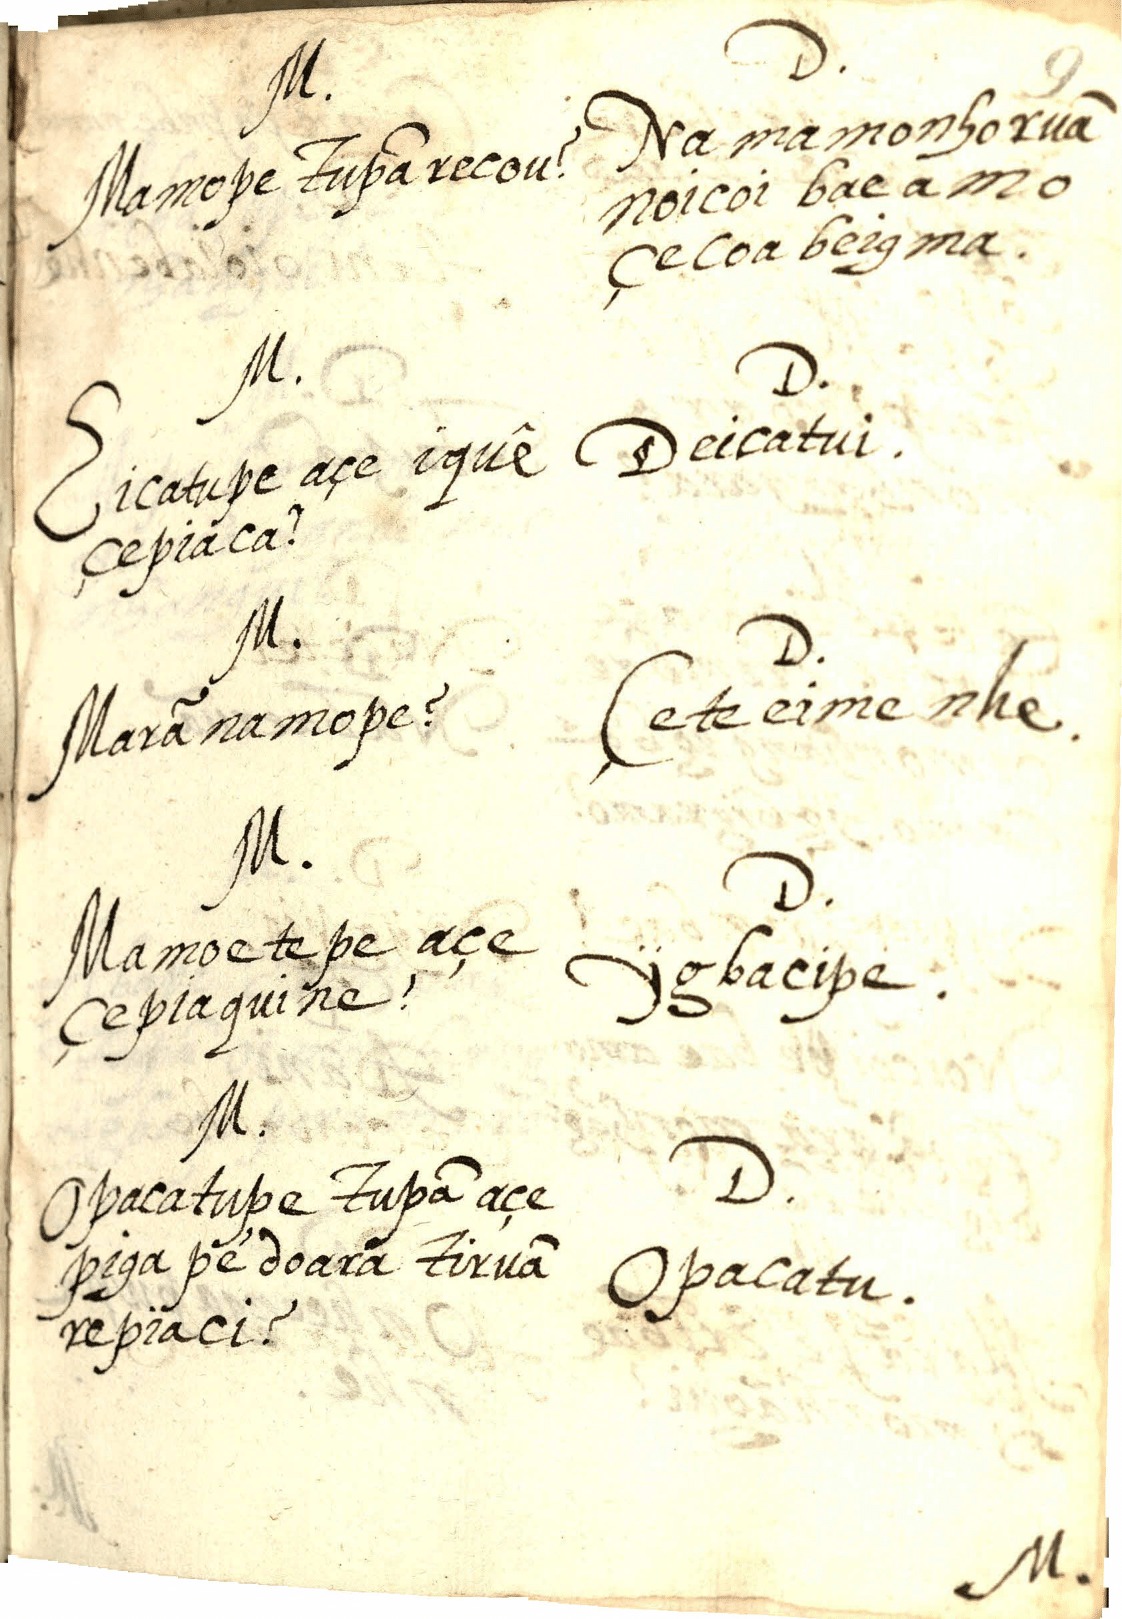 9
M.
Mamope Tupã recou?
D.
Na mamonhoruã
noicoi bae amo
çecoa beigma.
M.
Eicatupe açe iquê
çepiáca?
D.
Deicatui.
M.
Marã namope?
D.
Çete eime nhe.
M.
Mamoetepe açe
çepiaquine?
D.
Ÿgbacipe.
M.
Opacatupe Tupã açe
piga pé doara tiruã
repïaci?
D.
Opacatu.
M.